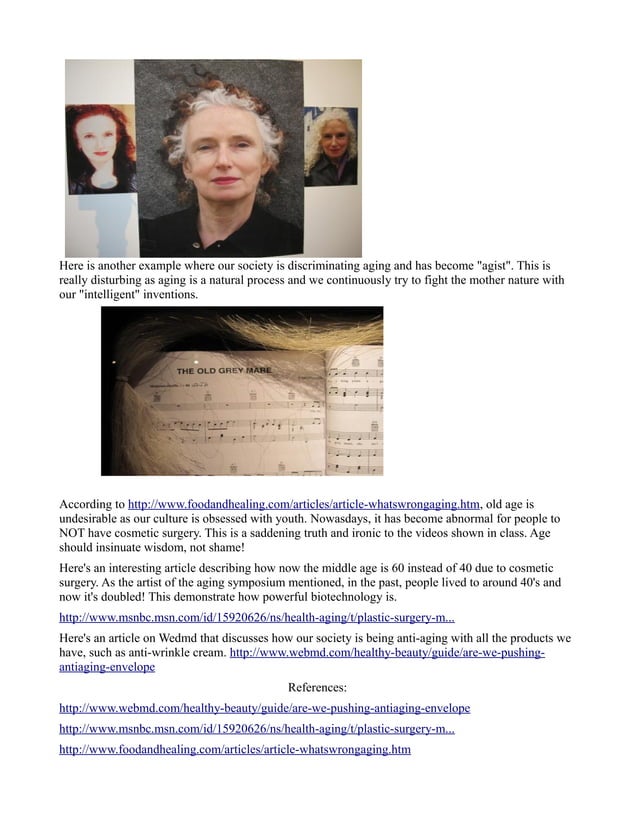 Here is another example where our society is discriminating aging and has become "agist". This is
really disturbing as aging is a natural process and we continuously try to fight the mother nature with
our "intelligent" inventions.
THE OLD GREY MARE
According to http://www.foodandhealing.com/articles/article-whatswrongaging.htm, old age is
undesirable as our culture is obsessed with youth. Nowasdays, it has become abnormal for people to
NOT have cosmetic surgery. This is a saddening truth and ironic to the videos shown in class. Age
should insinuate wisdom, not shame!
Here's an interesting article describing how now the middle age is 60 instead of 40 due to cosmetic
surgery. As the artist of the aging symposium mentioned, in the past, people lived to around 40's and
now it's doubled! This demonstrate how powerful biotechnology is.
http://www.msnbc.msn.com/id/15920626/ns/health-aging/t/plastic-surgery-m...
Here's an article on Wedmd that discusses how our society is being anti-aging with all the products we
have, such as anti-wrinkle cream. http://www.webmd.com/healthy-beauty/guide/are-we-pushing-
antiaging-envelope
References:
http://www.webmd.com/healthy-beauty/guide/are-we-pushing-antiaging-envelope
http://www.msnbc.msn.com/id/15920626/ns/health-aging/t/plastic-surgery-m...
http://www.foodandhealing.com/articles/article-whatswrongaging.htm